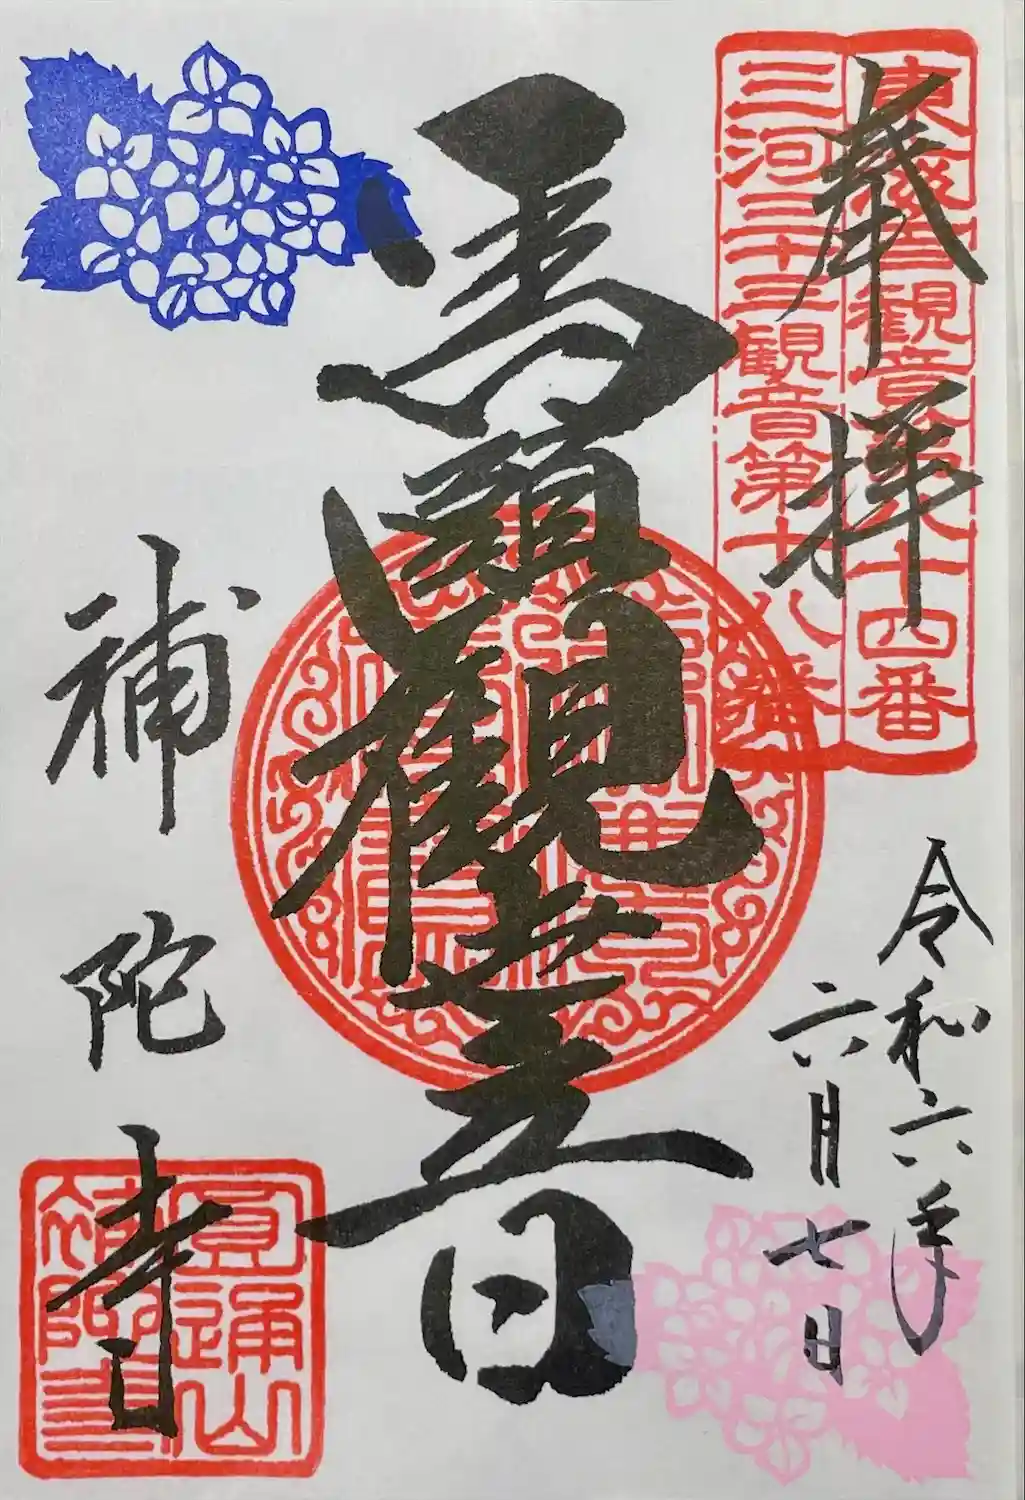 奉拝
東海百観音第八十四番
三河三十三観音第十八番
令和六年
六月七日
馬頭觀世音
補陀寺
圓通山
補陀寺